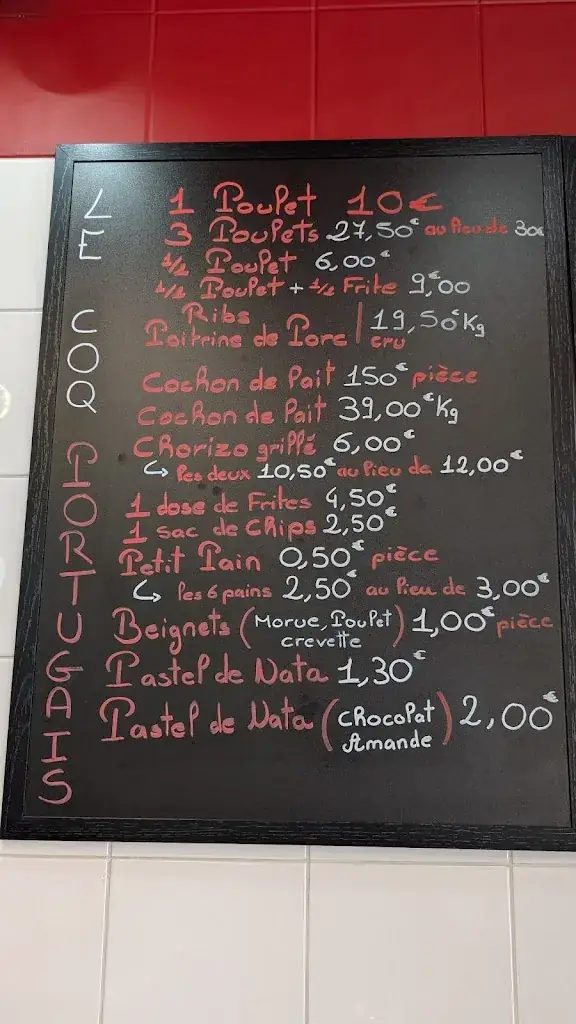 LE COQ PORTUGAIS
1 Poulet 10€
3 Poulets 27,50€ au lieu de 30€
1/2 Poulet 6,00€
1/2 Poulet + 1/2 Frite 9,00€
Ribs
Poitrine de Porc | 19,50€ Kg cru
Cochon de Lait 150€ pièce
Cochon de Lait 39,00€ Kg
Chorizo grillé 6,00€
↳ les deux 10,50€ au lieu de 12,00€
1 dose de Frites 4,50€
1 sac de Chips 2,50€
Petit Pain 0,50€ pièce
↳ les 6 pains 2,50€ au lieu de 3,00€
Beignets (Morue, Poulet crevette) 1,00€ pièce
Pastel de Nata 1,30€
Pastel de Nata (Chocolat Amande) 2,00€